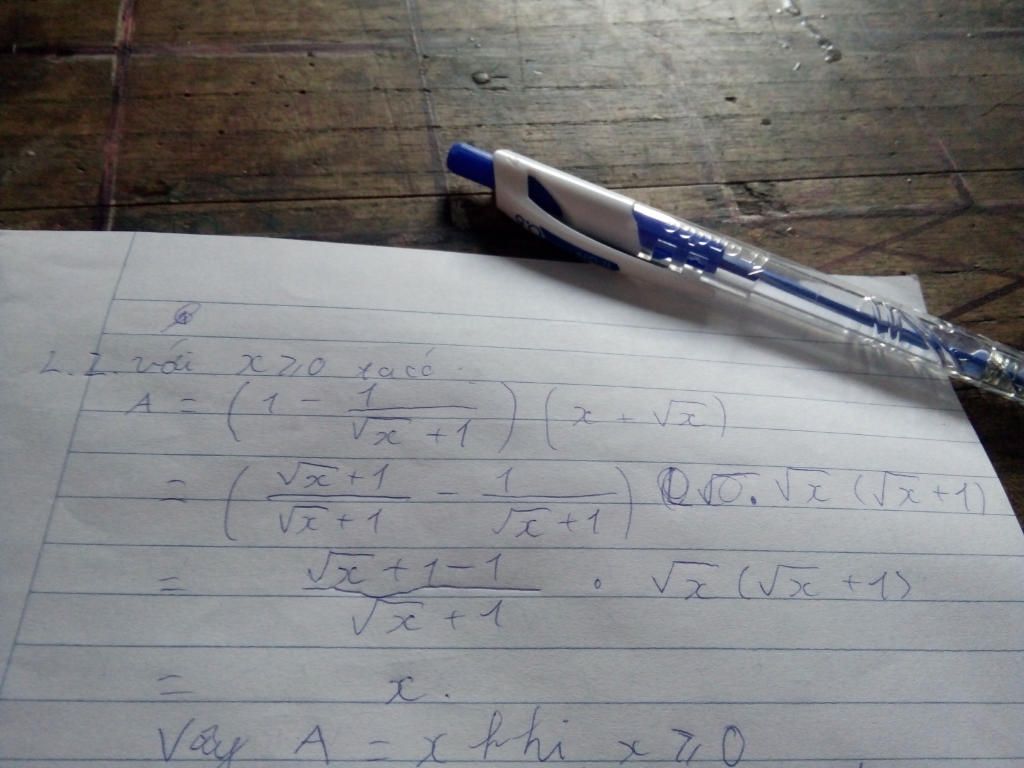 1.2. với x ⩾ 0 ta có
A = ( 1 - 1/(√x + 1) ) ( x + √x )
= ( (√x + 1)/(√x + 1) - 1/(√x + 1) ) . √x (√x + 1)
= (√x + 1 - 1)/(√x + 1) . √x (√x + 1)
= x.
Vậy A = x khi x ⩾ 0